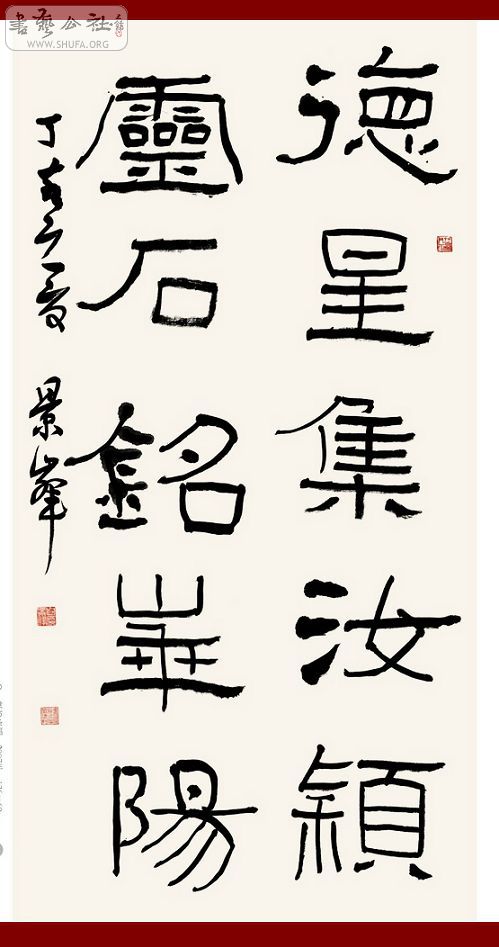 書藝公社
WWW.SHUFA.ORG
德星集汝頴
靈石銘崋陽
丁亥之夏 景峯